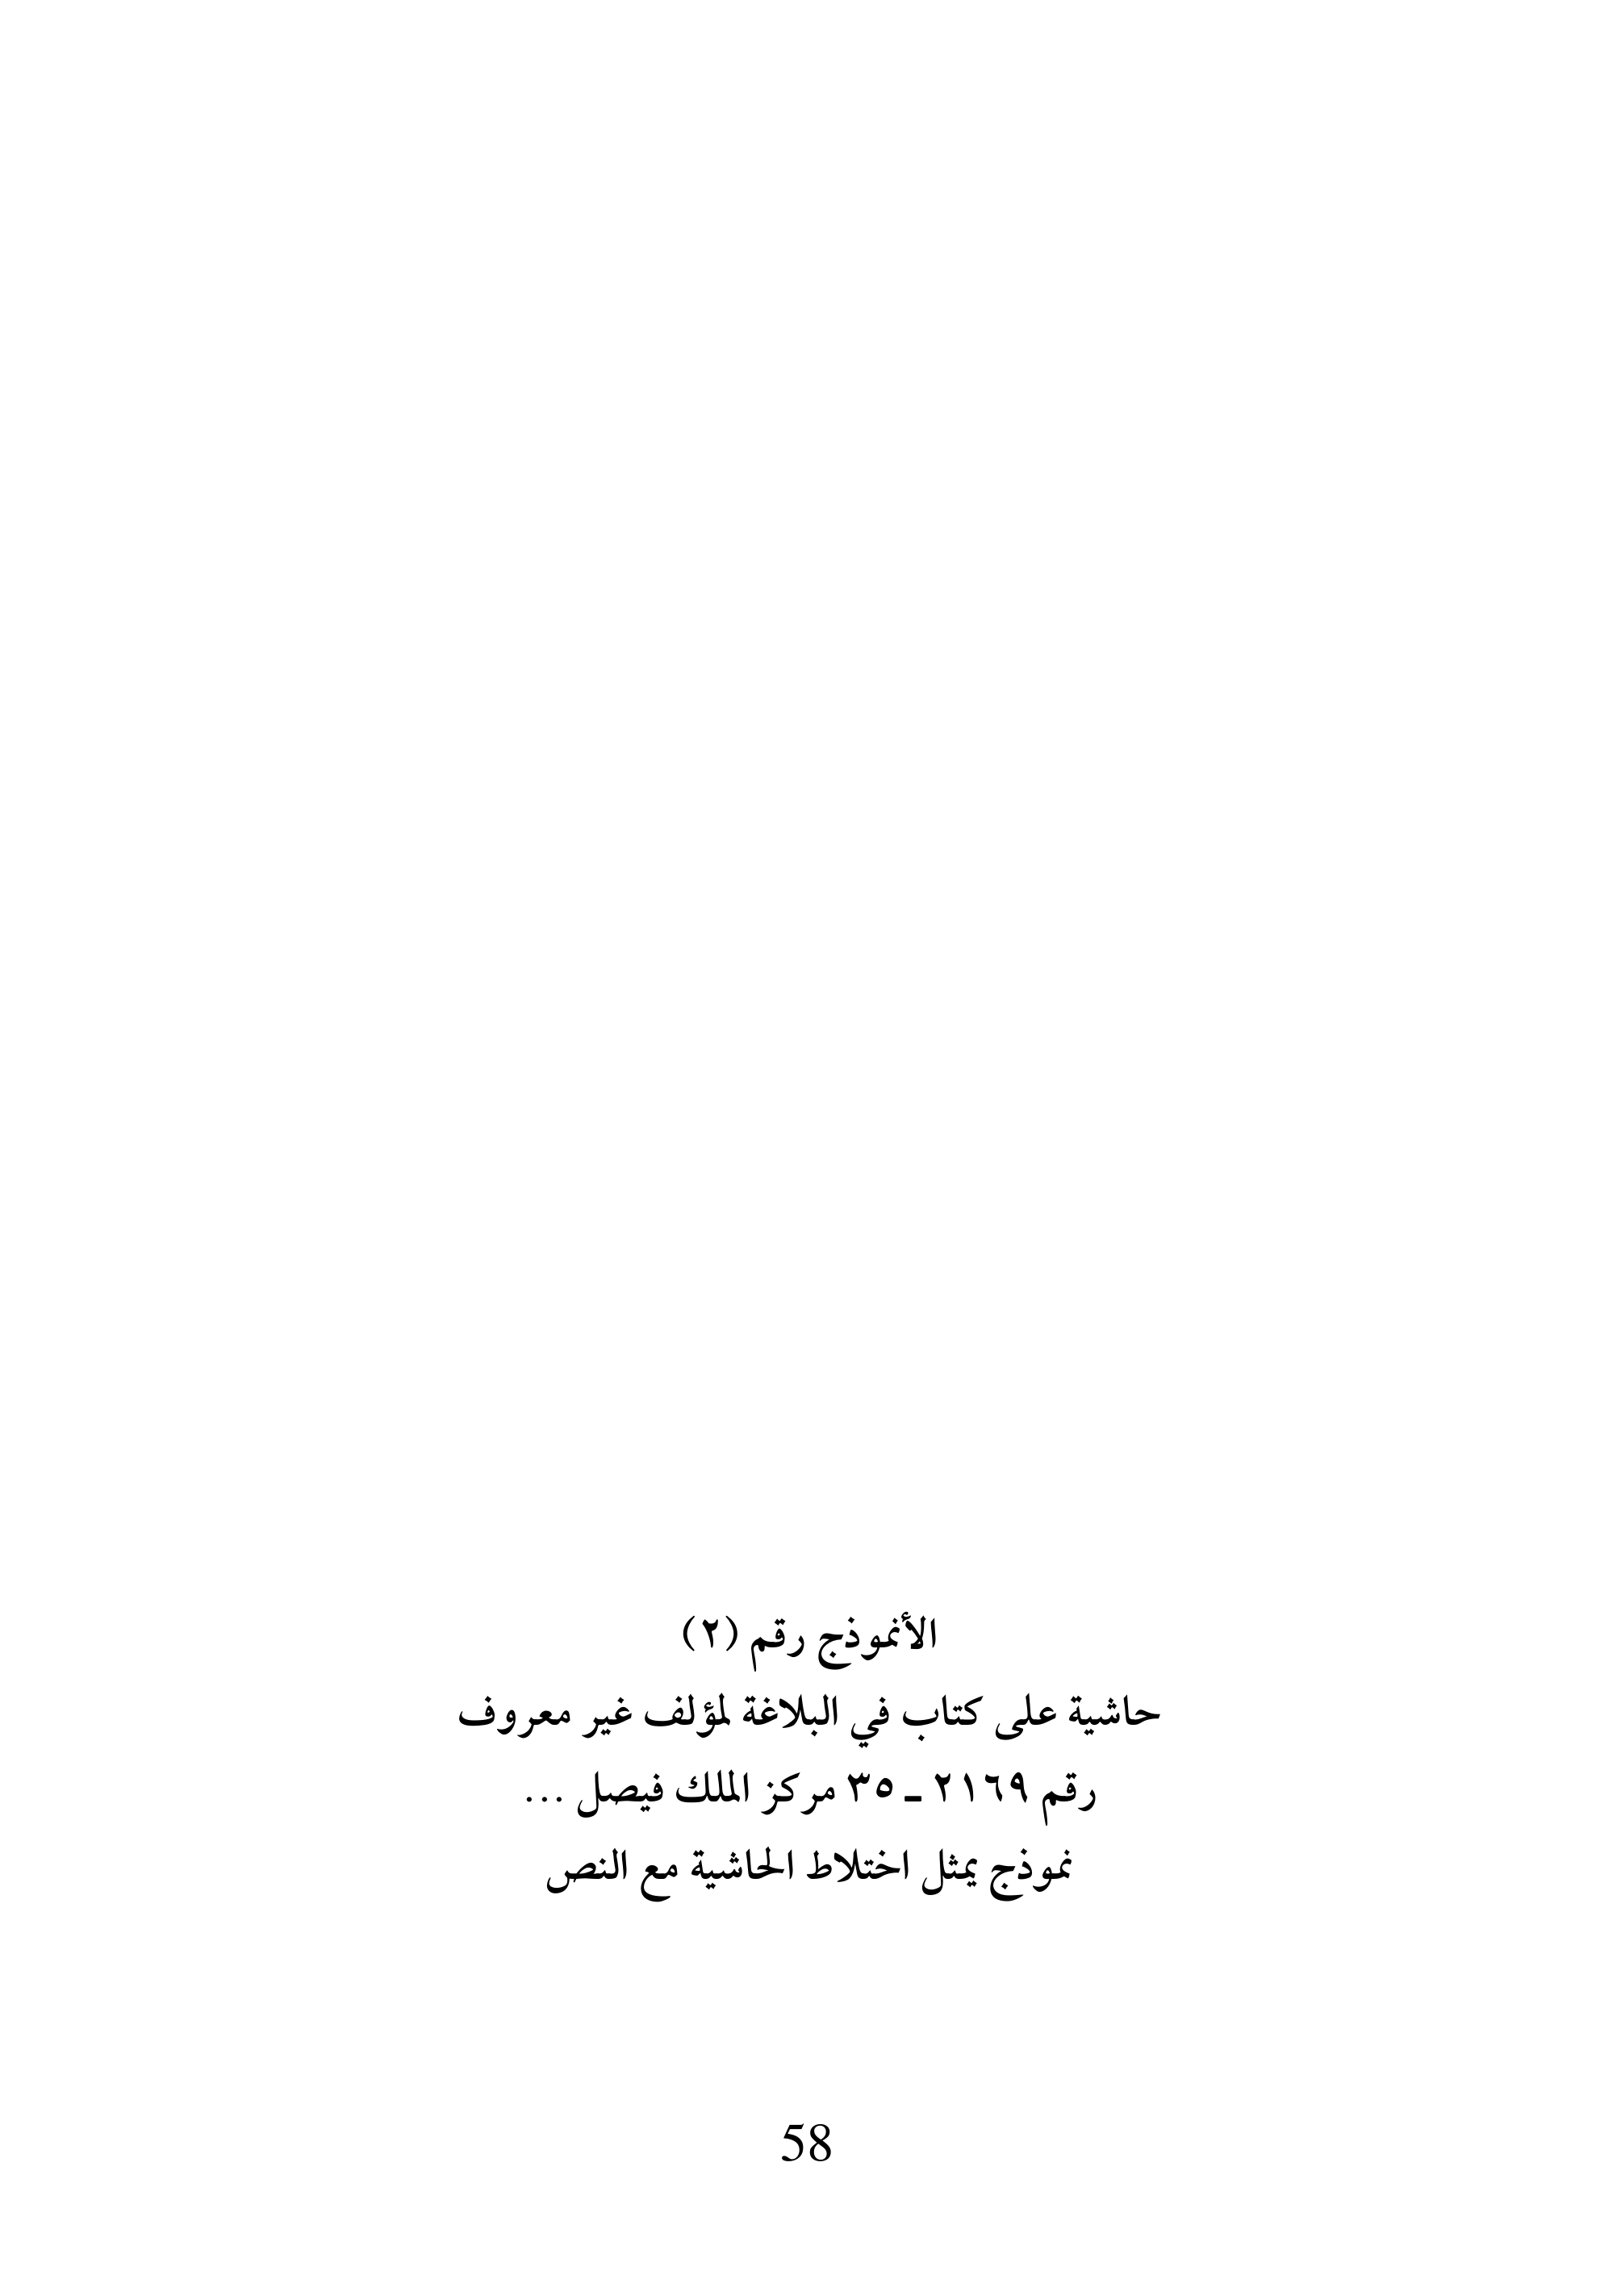 الأنموذج رقم (٢)
حاشية على كتاب في البلاغة لمؤلف غير معروف
رقم ٢١٦٩ ـ ٣٥ مركز الملك فيصل ...
نموذج يمثل اختلاط الحاشية مع النص
58